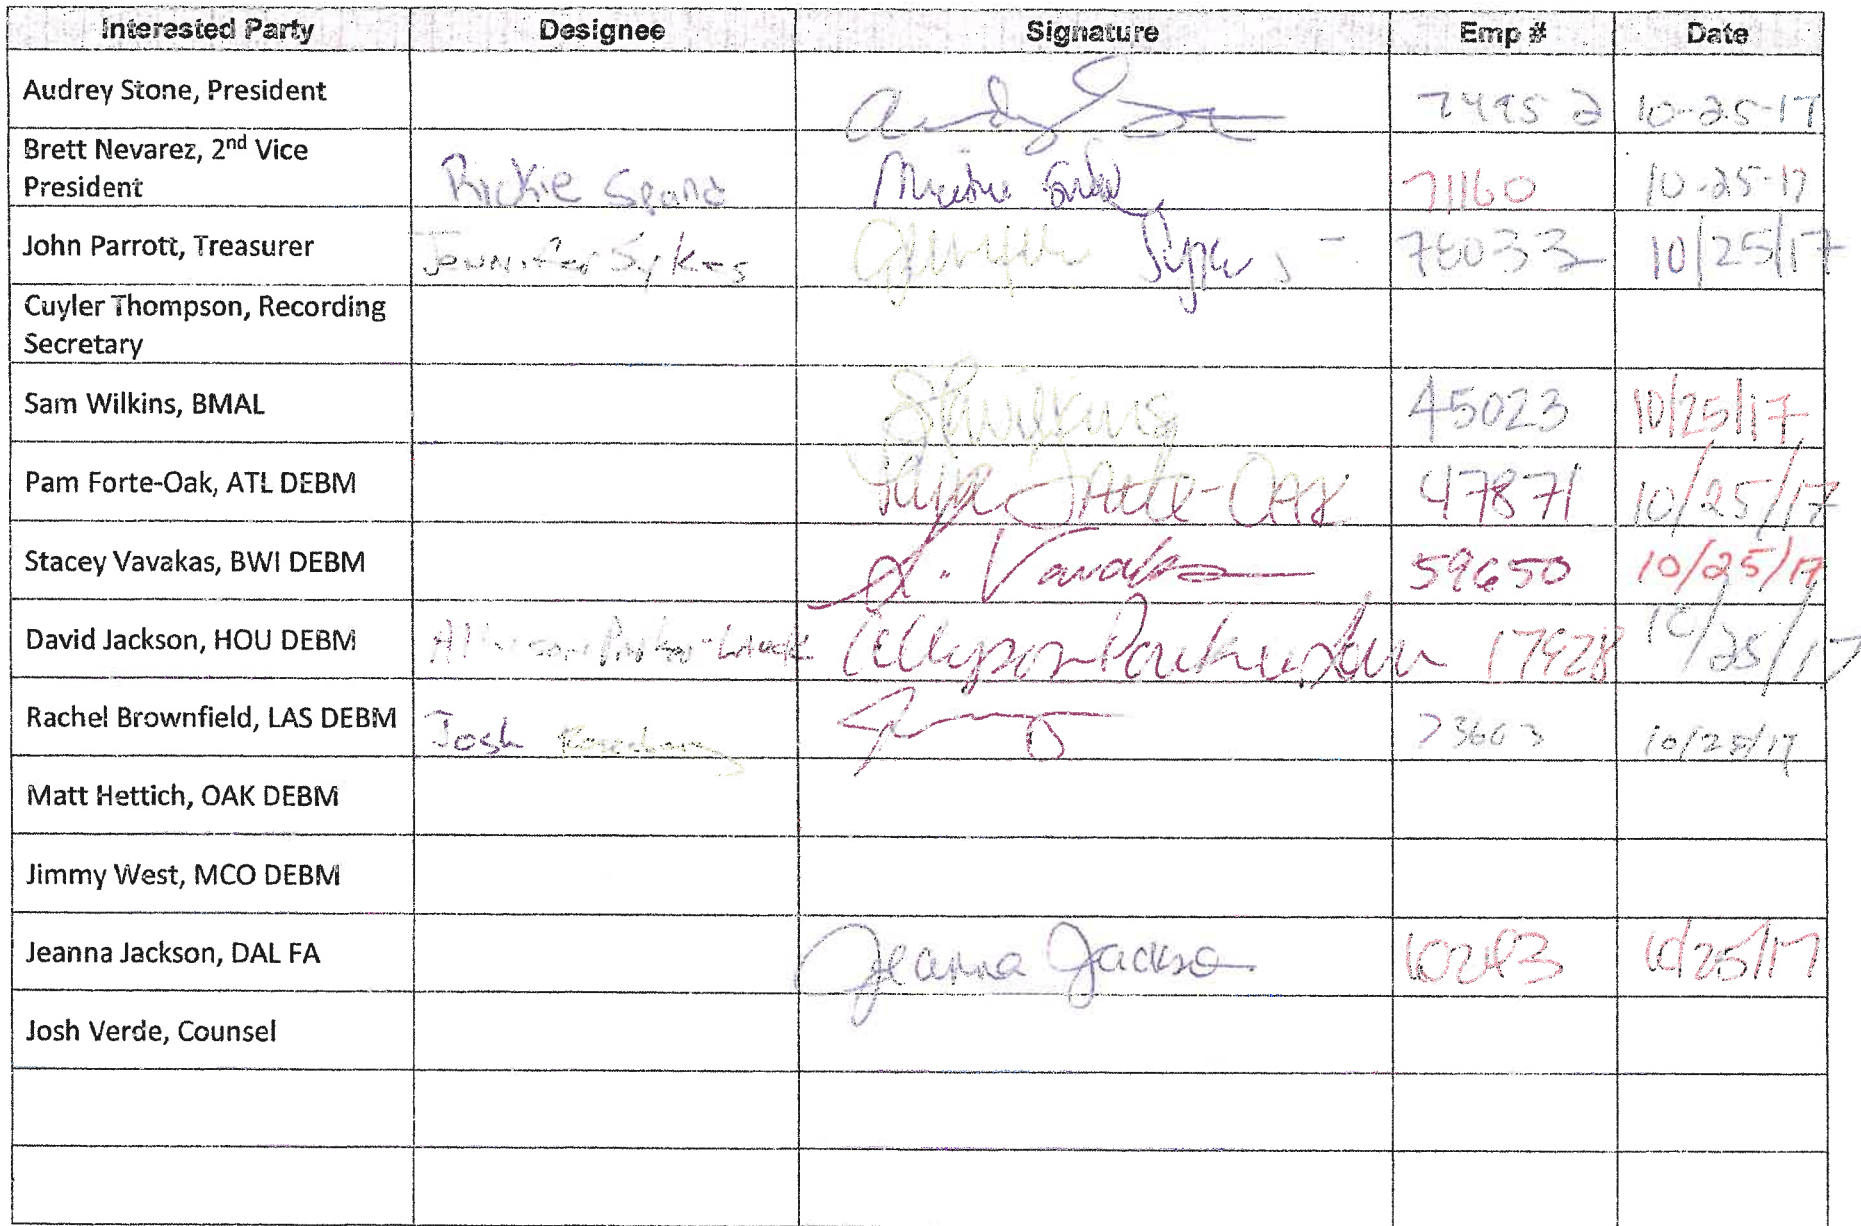 Interested Party Designee Signature Emp # Date
Audrey Stone, President 10-25-17
Brett Nevarez, 2nd Vice
President Rickie Spand 71160 10-25-17
John Parrott, Treasurer Jennifer Sykes Jennifer Sykes 78033 10/25/17
Cuyler Thompson, Recording
Secretary
Sam Wilkins, BMAL SWilkins 45023 10/25/17
Pam Forte-Oak, ATL DEBM Forte-Oak 47871 10/25/17
Stacey Vavakas, BWI DEBM S. Vavakas 59650 10/25/17
David Jackson, HOU DEBM Allyson Parker-Lauck Allyson Parker-Lauck 17928 10/25/17
Rachel Brownfield, LAS DEBM Josh 73603 10/25/17
Matt Hettich, OAK DEBM
Jimmy West, MCO DEBM
Jeanna Jackson, DAL FA Jeanna Jackson 10/25/17
Josh Verde, Counsel